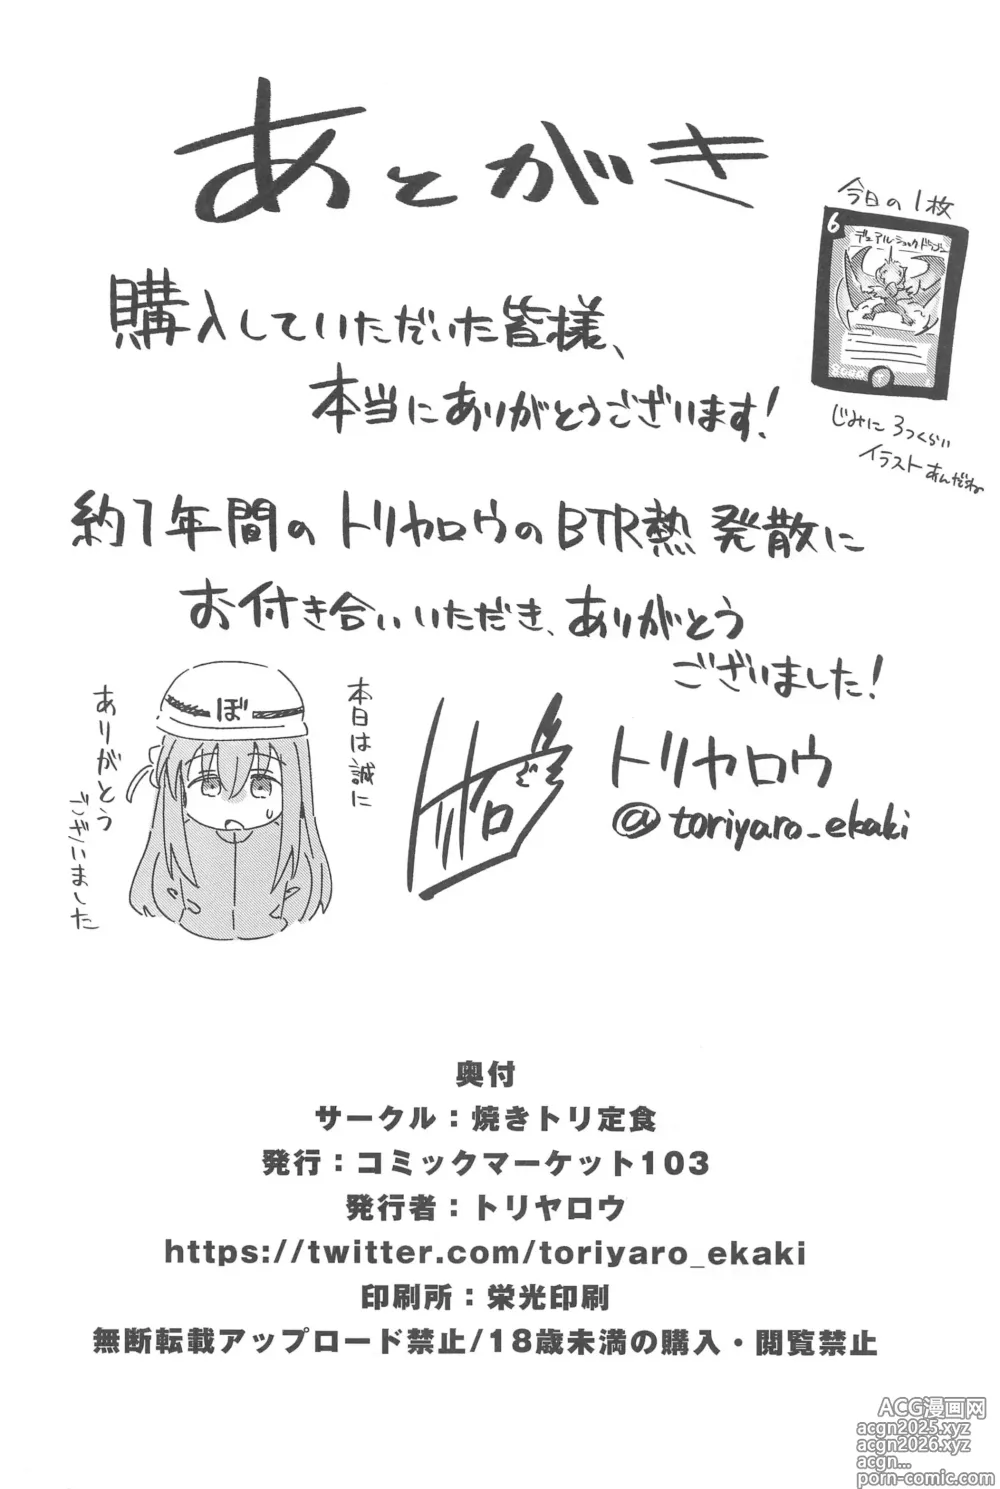 あとがき
今日の1枚
6
デュアルショックドラゴン
じみに3つくらい
イラストあんだね
購入していただいた皆様、
本当にありがとうございます!
約1年間のトリヤロウのBTR熱発散に
お付き合いいただき、ありがとう
ございました!
本日は誠に
ありがとう
ございました
ぼ
トリヤロウ
@toriyaro_ekaki
奥付
サークル：焼きトリ定食
発行：コミックマーケット103
発行者：トリヤロウ
https://twitter.com/toriyaro_ekaki
印刷所：栄光印刷
無断転載アップロード禁止/18歳未満の購入・閲覧禁止
ACG漫画网
acgn2025.xyz
acgn2026.xyz
acgn...
porn-comic.com